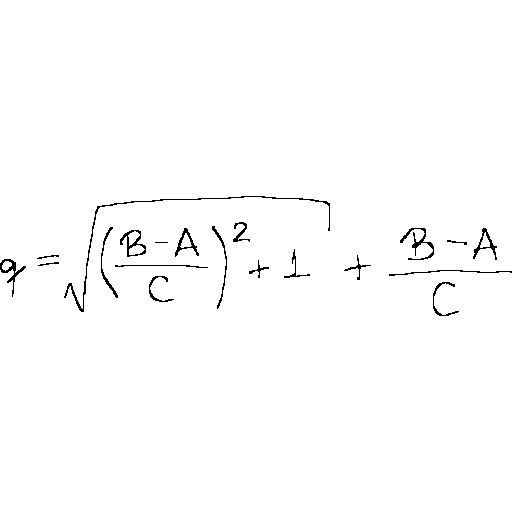 q = \sqrt{\left(\frac{B-A}{C}\right)^2 + 1} + \frac{B-A}{C}